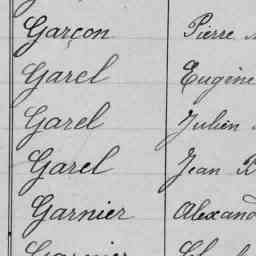 Garçon Pierre
Garel Eugène
Garel Julien
Garel Jean R
Garnier Alexand